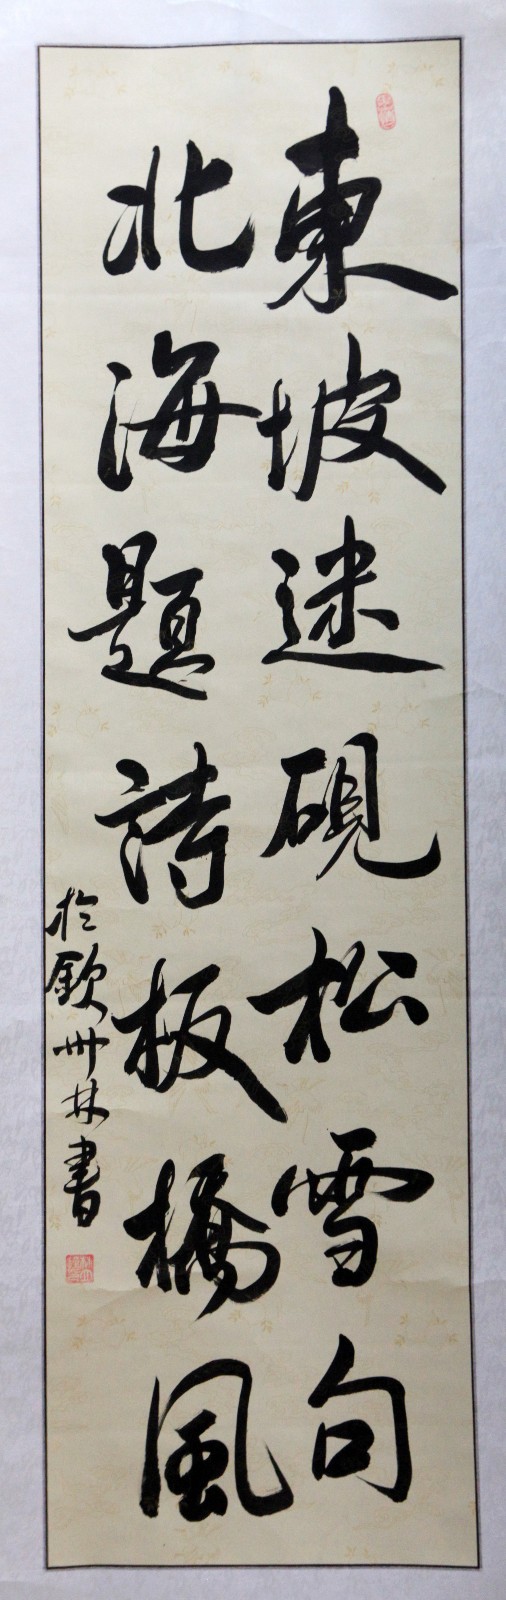 東坡迷硯松雪句
北海題詩板橋風
於欽州林書